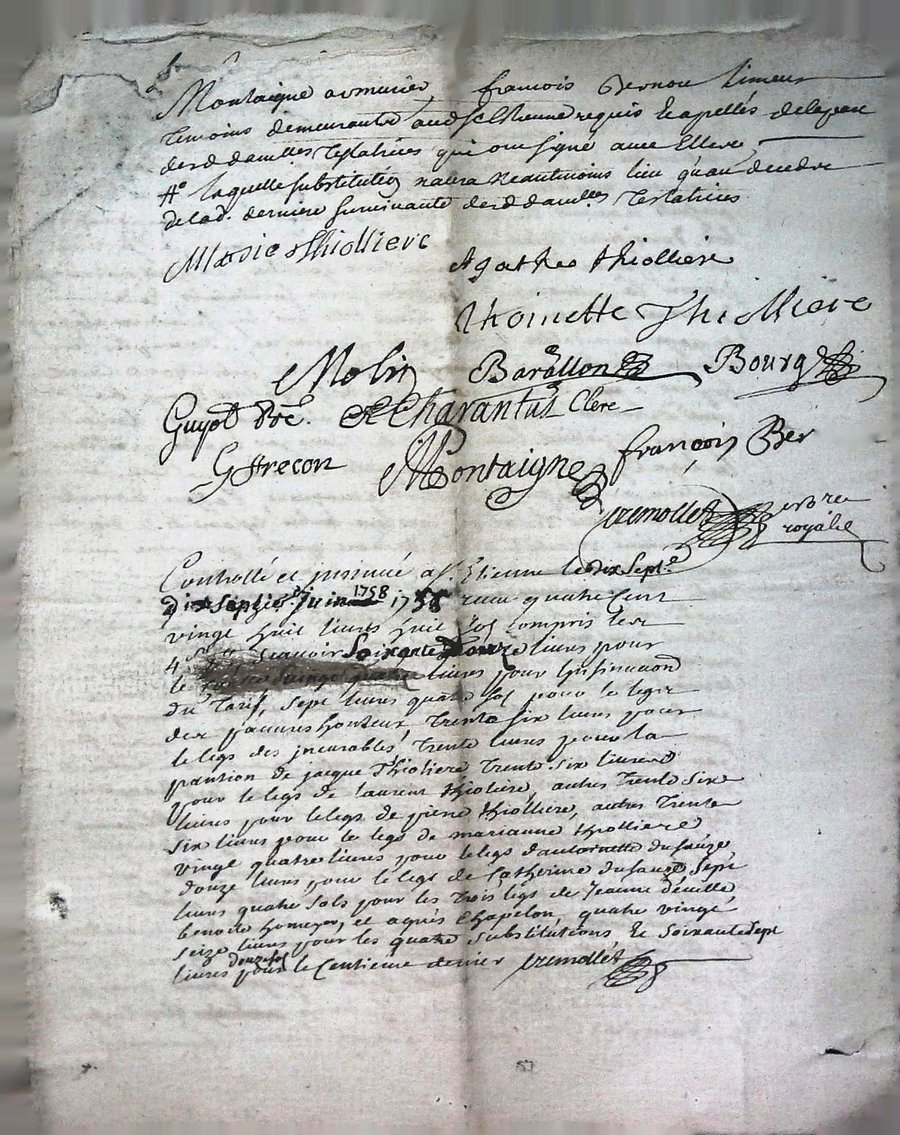 Montaigne armurier françois Vernou limeur
temoins demeurants aud St Etienne requis & apellés de la part
desd damlles Testatrices qui ont signé avec
# laquelle substitution naura neantmoins lieu qu'au deceds
de lad. derniere survivante desd damlles Testatrices
Marie thiolliere
Agathe thiolliere
thoinette Thiolliere
Molin Baràllon Bourg
Guyot Charantus Clerc
G frecon Montaigne françois Ber
tremollet nore
royalle
Controllé et insinué a St. Etienne le dix Septe
dix septieme Juin 1758 1758 receu quatre Cent
vingt huit livres huit sols Compris les
4 s scavoir Soixante Douze livres pour
le vingt quatre livres pour Linsinuaon
du Tarif, sept livres quatre sols pour le legs
des pauvres honteux, Trente six livres pour
le legs des incurables, trente livres pour la
pantion de jacque Thioliere Trente six livres
pour le legs de laurent thioliere, autres Trente six
livres pour le legs de pierre thiolliere, autres Trente
six livres pour le legs de marianne thiolliere
vingt quatre livres pour le legs d'antoinette dusauze
douze livres pour le legs de Catherine dusauze, Sept
livres quatre sols pour les Trois legs de Jeanne deville
benoite et agnés Chapelon, quatre vingt
seize livres pour les quatre substitutions Et soixante sept
livres douze sol pour le Centieme denier tremollet